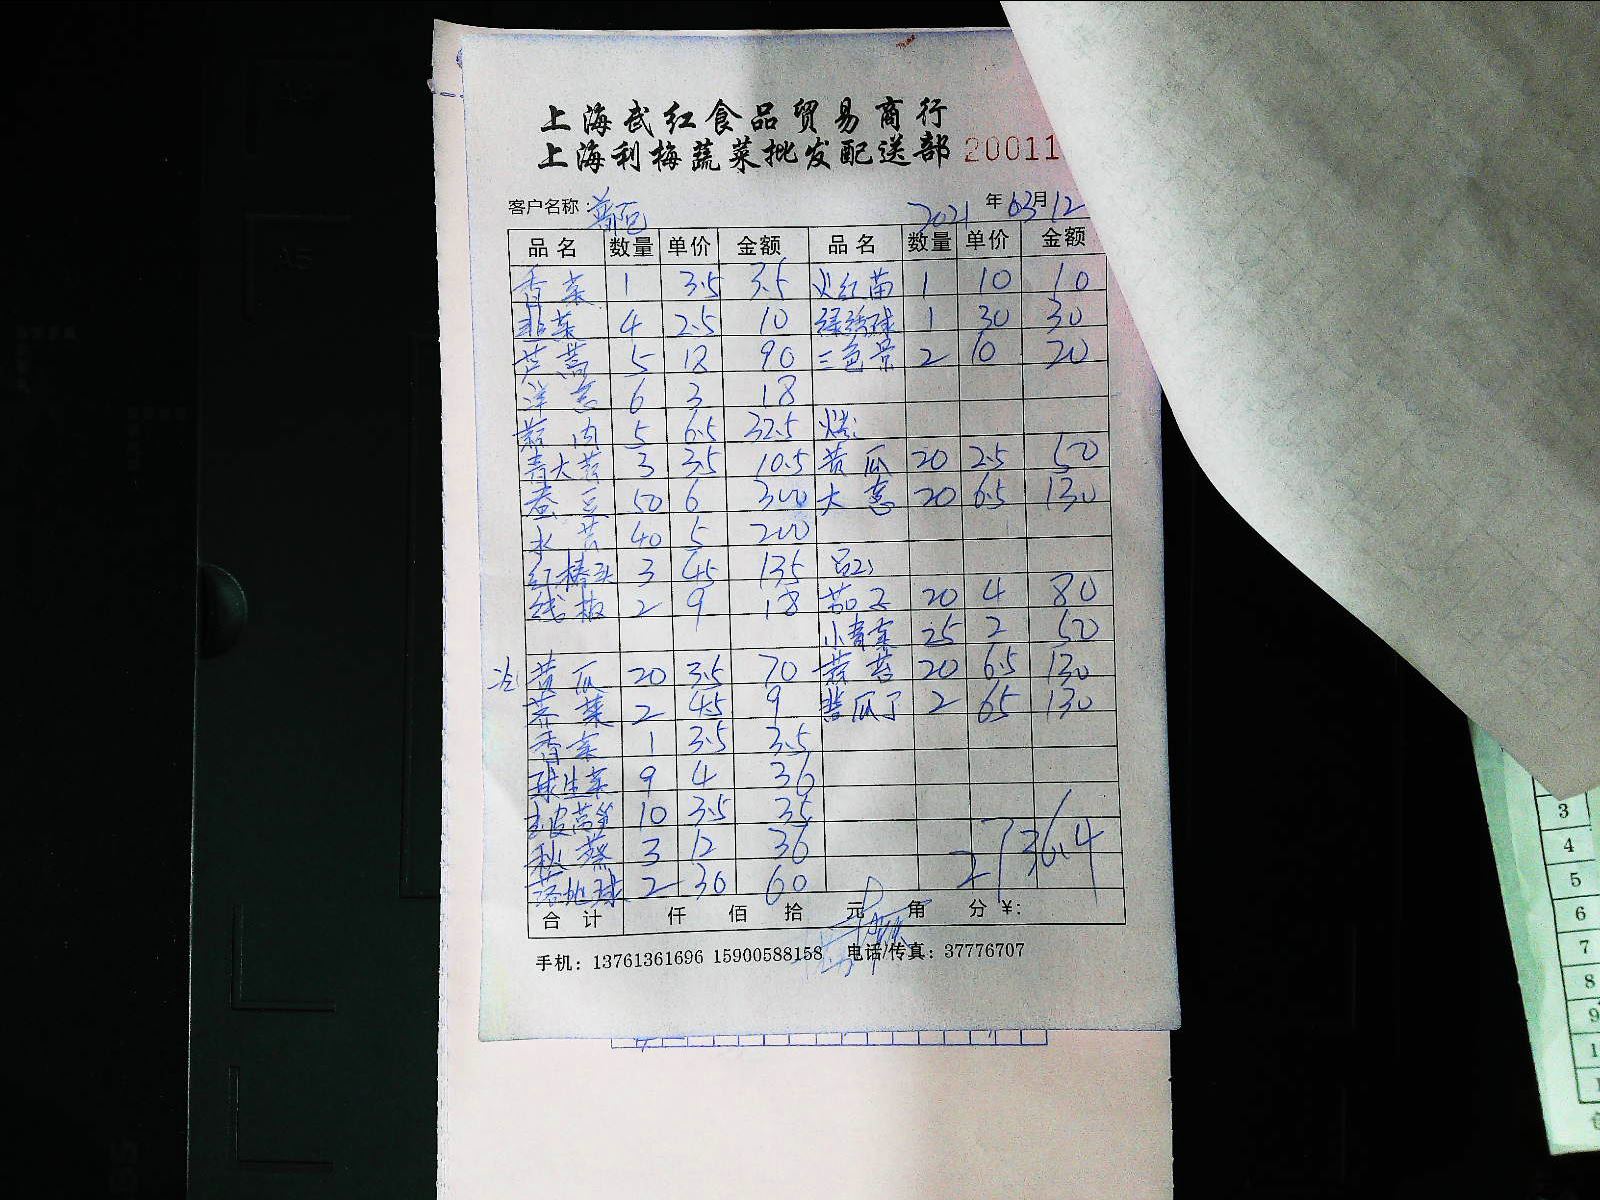 上海武红食品贸易商行
上海利梅蔬菜批发配送部 20011
客户名称: 2021 年 03 月 12
品名 数量 单价 金额 品名 数量 单价 金额
香菜 1 3.5 3.5 火红苗 1 10 10
韭菜 4 2.5 10 绿绣球 1 30 30
芦蒿 5 18 90 三色堇 2 10 20
洋葱 6 3 18
蒜肉 5 6.5 32.5
青大苔 3 3.5 10.5 黄瓜 20 2.5 50
蚕豆 50 6 300 大葱 20 6.5 130
水芹 40 5 200
红椿头 3 45 135
线椒 2 9 18 茄子 20 4 80
小青菜 25 2 50
黄瓜 20 3.5 70 蒜苔 20 6.5 130
荠菜 2 4.5 9 瓜丁 2 65 130
香菜 1 3.5 3.5
球生菜 9 4 36
皮莴笋 10 3.5 35
秋葵 3 12 36
落地球 2 30 60
2736.4
合计 仟 佰 拾 元 角 分 ¥:
手机: 13761361696 15900588158 电话/传真: 37776707
3
4
5
6
7
8
9